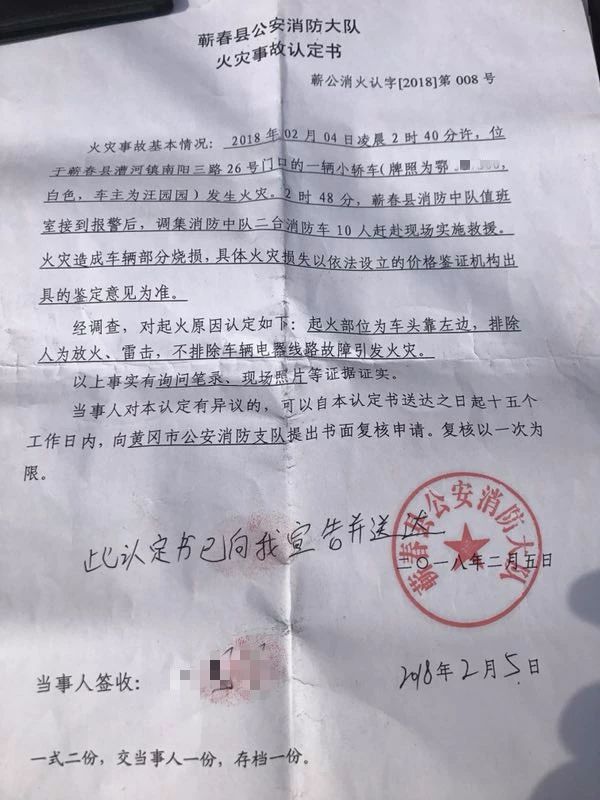 蕲春县公安消防大队
火灾事故认定书
蕲公消火认字[2018]第 008 号
火灾事故基本情况：2018 年 02 月 04 日凌晨 2 时 40 分许，位
于蕲春县漕河镇南阳三路 26 号门口的一辆小轿车（牌照为鄂
白色，车主为汪园园）发生火灾。2 时 48 分，蕲春县消防中队值班
室接到报警后，调集消防中队二台消防车 10 人赶赴现场实施救援。
火灾造成车辆部分烧损，具体火灾损失以依法设立的价格鉴证机构出
具的鉴定意见为准。
经调查，对起火原因认定如下：起火部位为车头靠左边，排除
人为放火、雷击，不排除车辆电器线路故障引发火灾。
以上事实有询问笔录、现场照片等证据证实。
当事人对本认定有异议的，可以自本认定书送达之日起十五个
工作日内，向黄冈市公安消防支队提出书面复核申请。复核以一次为
限。
此认定书已向我宣告并送达
蕲春县公安消防大队
二〇一八年二月五日
当事人签收：
2018年2月5日
一式二份，交当事人一份，存档一份。